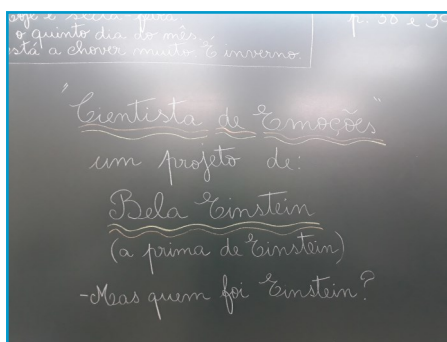 Hoje é sexta-feira.
o quinto dia do mês.
está a chover muito É inverno.
p. 38 e 39
"Cientista de Emoções"
um projeto de:
Bela Einstein
(a prima de Einstein)
-Mas quem foi Einstein?